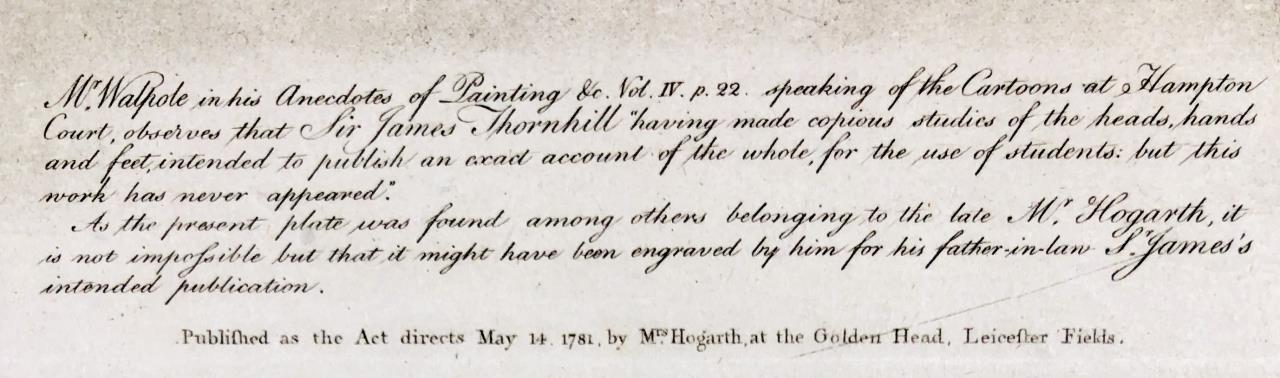 Mr. Walpole in his Anecdotes of Painting &c. Vol. IV. p. 22. speaking of the Cartoons at Hampton
Court, observes that Sir James Thornhill "having made copious studies of the heads, hands
and feet, intended to publish an exact account of the whole, for the use of students: but this
work has never appeared".
As the present plate was found among others belonging to the late Mr. Hogarth, it
is not impoſsible but that it might have been engraved by him for his father-in-law Sr. James's
intended publication.
Publiſhed as the Act directs May 14. 1781, by Mrs Hogarth, at the Golden Head, Leiceſter Fields.